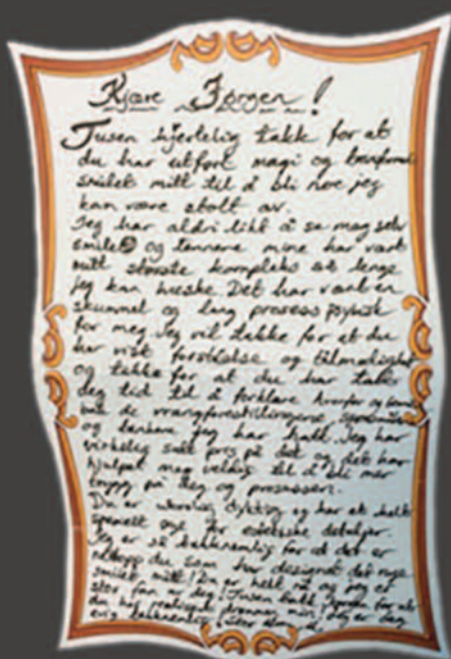 Kjære Jørgen!
Tusen hjertelig takk for at
du har utført magi og transformert
smilet mitt til å bli noe jeg
kan være stolt av.
Jeg har aldri likt å se meg selv
smile og tennene mine har vært
mitt største kompleks så lenge
jeg kan huske. Det har vært en
skummel og lang prosess psykisk
for meg. Jeg vil takke for at du
har vist forståelse og tålmodighet
og takke for at du har tatt
deg tid til å forklare hvorfor og
de vrangforestillingene
og tankene jeg har hatt. Jeg har
virkelig satt pris på det og det har
hjulpet meg veldig til å bli mer
trygg på deg og prosessen.
Du er utrolig dyktig og har et helt
spesielt øye for estetiske detaljer.
Jeg er så takknemlig for at det er
nettopp du som har designet det nye
smilet mitt! Du er helt rå og jeg er
stor fan av deg! Tusen takk for at
du har realisert drømmen min. Jeg er deg
evig takknemlig